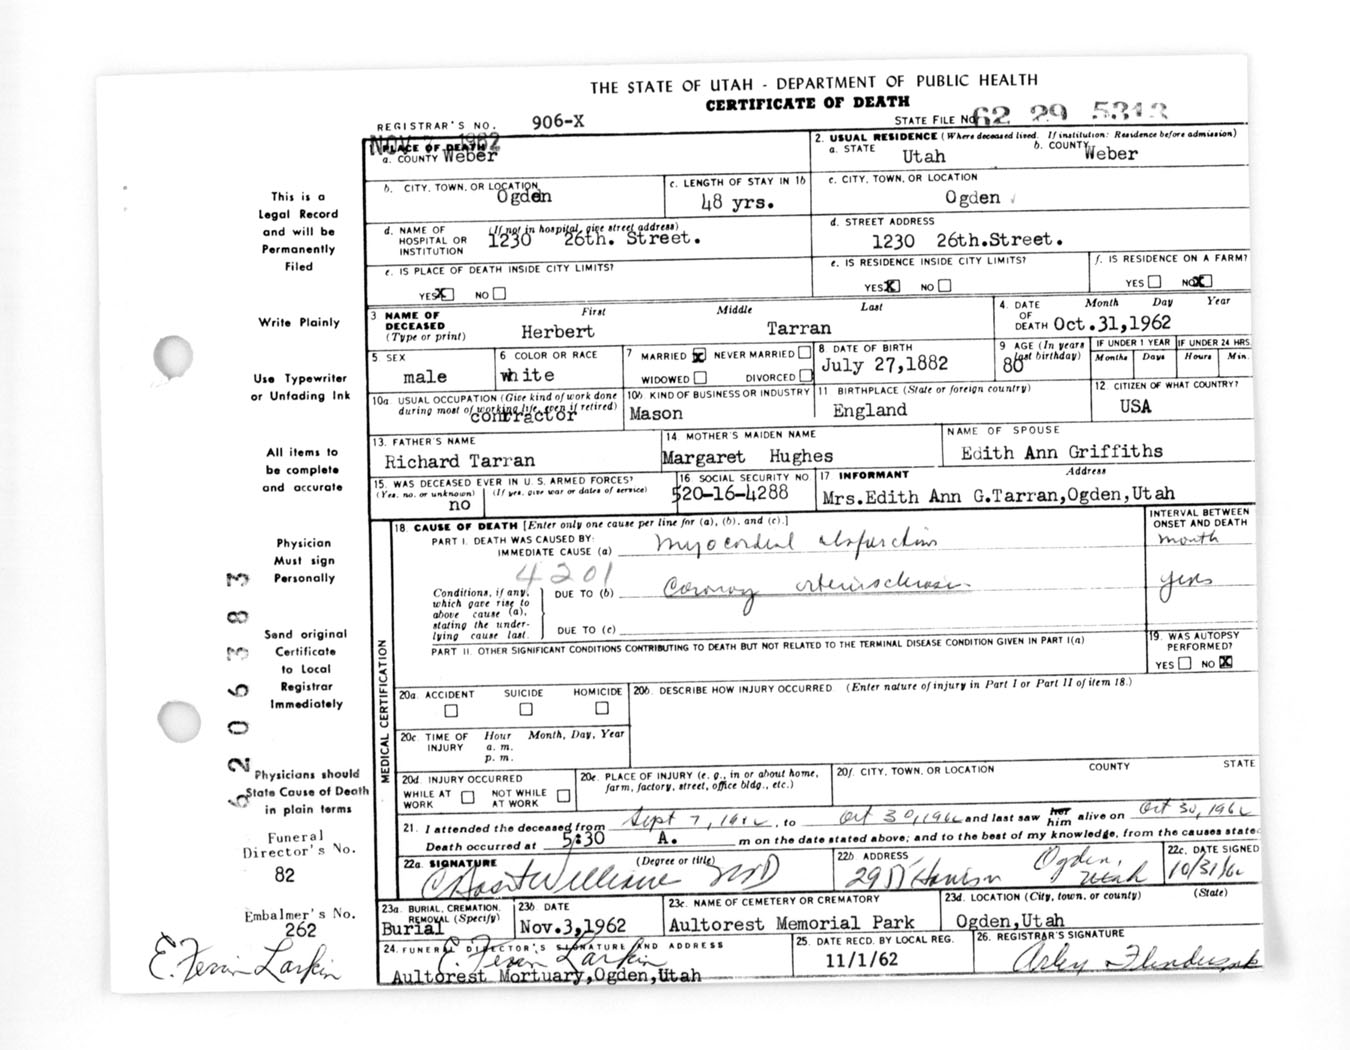 THE STATE OF UTAH - DEPARTMENT OF PUBLIC HEALTH
CERTIFICATE OF DEATH
REGISTRAR'S NO. 906-X
STATE FILE No. 62 29 5313
NOV 7 1962
PLACE OF DEATH
a. COUNTY Weber
2. USUAL RESIDENCE (Where deceased lived. If institution: Residence before admission)
a. STATE Utah b. COUNTY Weber
b. CITY, TOWN, OR LOCATION Ogden
c. LENGTH OF STAY IN 1b 48 yrs.
c. CITY, TOWN, OR LOCATION Ogden
d. NAME OF HOSPITAL OR INSTITUTION (If not in hospital, give street address) 1230 26th. Street.
d. STREET ADDRESS 1230 26th.Street.
e. IS PLACE OF DEATH INSIDE CITY LIMITS?
YES X NO
e. IS RESIDENCE INSIDE CITY LIMITS?
YES X NO
f. IS RESIDENCE ON A FARM?
YES NO X
3 NAME OF DECEASED (Type or print)
First Middle Last
Herbert Tarran
4. DATE OF DEATH Month Day Year
Oct.31,1962
5 SEX male
6 COLOR OR RACE white
7 MARRIED X NEVER MARRIED
WIDOWED DIVORCED
8 DATE OF BIRTH July 27,1882
9 AGE (In years last birthday) 80
IF UNDER 1 YEAR Months Days
IF UNDER 24 HRS. Hours Min.
10a. USUAL OCCUPATION (Give kind of work done during most of working life, even if retired) contractor
10b. KIND OF BUSINESS OR INDUSTRY Mason
11 BIRTHPLACE (State or foreign country) England
12 CITIZEN OF WHAT COUNTRY? USA
13. FATHER'S NAME Richard Tarran
14 MOTHER'S MAIDEN NAME Margaret Hughes
NAME OF SPOUSE Edith Ann Griffiths
15. WAS DECEASED EVER IN U. S. ARMED FORCES?
(Yes, no, or unknown) (If yes, give war or dates of service)
no
16 SOCIAL SECURITY NO 520-16-4288
17 INFORMANT Address
Mrs.Edith Ann G.Tarran,Ogden,Utah
MEDICAL CERTIFICATION
18 CAUSE OF DEATH [Enter only one cause per line for (a), (b), and (c).]
INTERVAL BETWEEN ONSET AND DEATH
PART I. DEATH WAS CAUSED BY:
IMMEDIATE CAUSE (a) Myocardial month
4201
Conditions, if any, which gave rise to above cause (a), stating the underlying cause last.
DUE TO (b) Coronary arteriosclerosis yrs
DUE TO (c)
PART II. OTHER SIGNIFICANT CONDITIONS CONTRIBUTING TO DEATH BUT NOT RELATED TO THE TERMINAL DISEASE CONDITION GIVEN IN PART I(a)
19. WAS AUTOPSY PERFORMED?
YES NO X
20a. ACCIDENT SUICIDE HOMICIDE
20b. DESCRIBE HOW INJURY OCCURRED (Enter nature of injury in Part I or Part II of item 18.)
20c. TIME OF INJURY Hour Month, Day, Year
a. m.
p. m.
20d. INJURY OCCURRED
WHILE AT WORK NOT WHILE AT WORK
20e. PLACE OF INJURY (e. g., in or about home, farm, factory, street, office bldg., etc.)
20f. CITY, TOWN, OR LOCATION COUNTY STATE
21. I attended the deceased from Sept 7, 1962, to Oct 30, 1962 and last saw her him alive on Oct 30, 1962
Death occurred at 5:30 A. m on the date stated above; and to the best of my knowledge, from the causes state
22a. SIGNATURE (Degree or title) Williams MD
22b ADDRESS Ogden, Utah
22c. DATE SIGNED 10/31/62
23a. BURIAL, CREMATION, REMOVAL (Specify) Burial
23b DATE Nov.3,1962
23c. NAME OF CEMETERY OR CREMATORY Aultorest Memorial Park
23d. LOCATION (City, town, or county) (State) Ogden,Utah
24. FUNERAL DIRECTOR'S SIGNATURE AND ADDRESS
E. Larkin
Aultorest Mortuary,Ogden,Utah
25. DATE RECD. BY LOCAL REG. 11/1/62
26. REGISTRAR'S SIGNATURE
This is a
Legal Record
and will be
Permanently
Filed
Write Plainly
Use Typewriter
or Unfading Ink
All items to
be complete
and accurate
Physician
Must sign
Personally
Send original
Certificate
to Local
Registrar
Immediately
Physicians should
State Cause of Death
in plain terms
Funeral
Director's No.
82
Embalmer's No.
262
E. Larkin